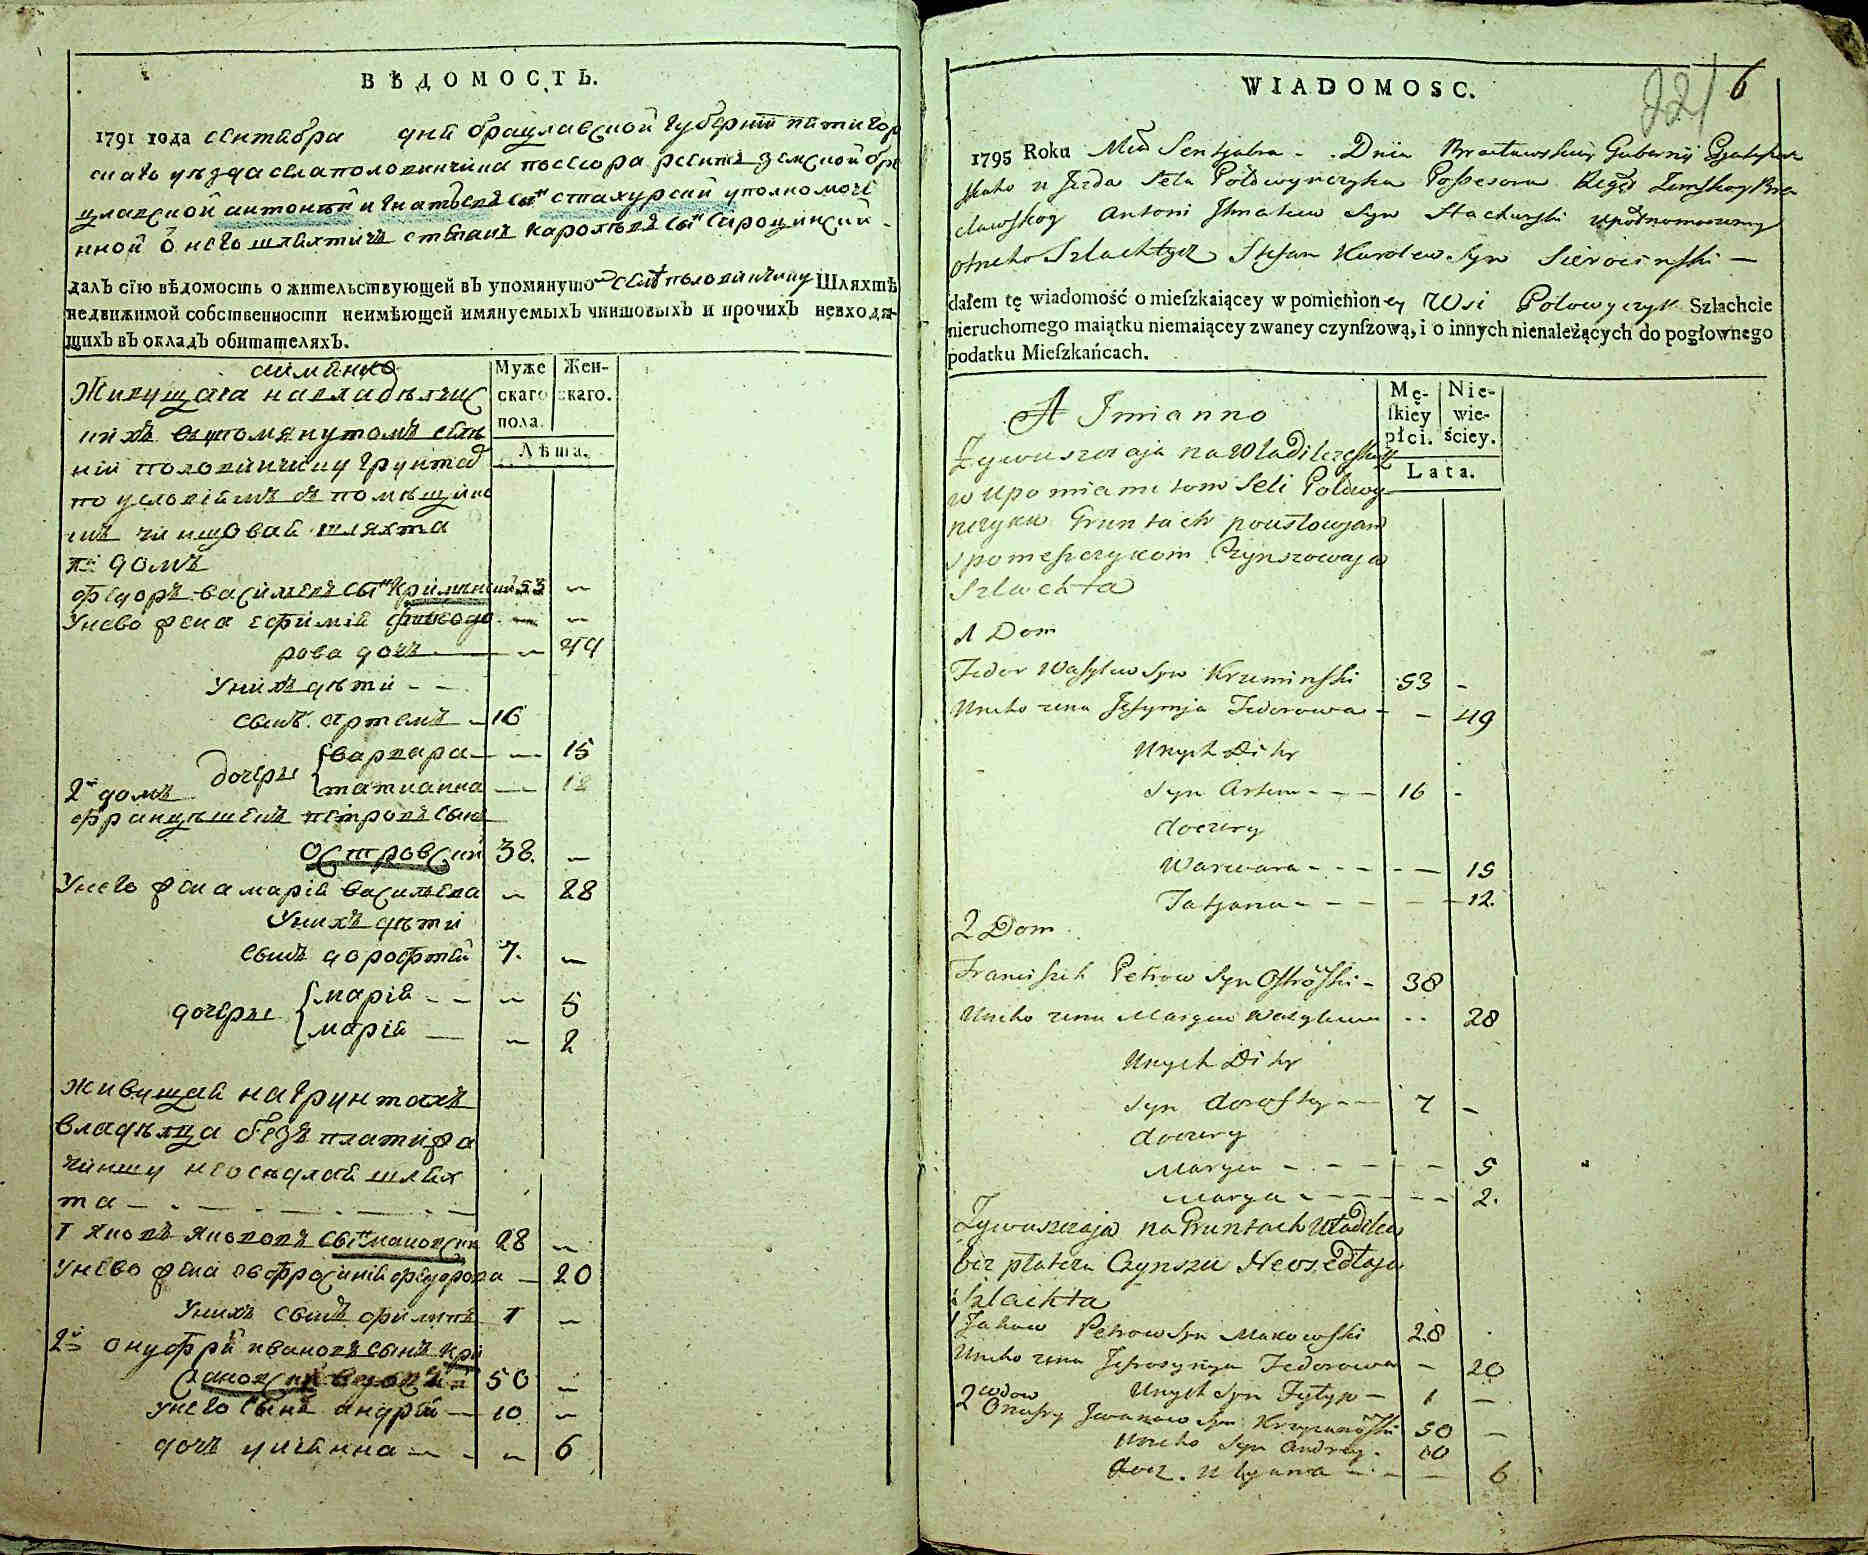 ВѢДОМОСТЬ.
1791 года сентября дня брацлавской губернии пятигор
скаго уѣзда села половинчика поссесора реента земской бра
цлавской антонъ игнатьевъ сынъ стахурский уполномоче
нной о него шляхтичъ стефанъ каролевъ сынъ сироцинский
далъ сїю вѣдомость о жительствующей въ упомянутомъ селѣ половинчику Шляхтѣ
недвижимой собственности неимѣющей имянуемыхъ чиншовыхъ и прочихъ невходя-
щихъ въ окладъ обитателяхъ.
аимянно
Муже Жен-
скаго скаго.
пола.
Лѣта.
Живущая навладѣлчес
кихъ въ упомянутомъ селе
нии половинчику грунтах
по условиямъ съ помѣщико
мъ чиншовая шляхта
1й домъ
Федоръ василевъ сынъ Криминский 53 —
Унево жена ефимия Федо
рова дочь — 49
Унихъ дѣти
сынъ артемъ 16
дочери варвара — 15
татианна — 12
2й домъ
Францишекъ петровъ сынъ
Островский 38. —
Унего жена мария василева — 28
Унихъ дѣти
сынъ дорофтей 7. —
дочери мария — 5
мария — 2
живущая на грунтахъ
владѣлца безъ платежа
чиншу неоседлая шлях
та
1 Яковъ сынъ маковски 28 —
унево жена евфросиния федорова — 20
Унихъ сынъ филипъ 1 —
2й онуфрий ивановъ сынъ Кри
50 —
унего сынъ андрей 10 —
дочь улиянна — 6
WIADOMOSC.
221 6
1795 Roku Mca Sentjabra Dnia Bractawskiey Gubernij Pjatyhor
skaho ujezda Sela Połowynczyka Possesora Regent Zemskoy Bra
cławskoy Antoni Ihnatiew Syn Stachurski upołnomoczeny
otneho Szlachtycz Stefan Karolew Syn Sierocinski —
dałem tę wiadomość o mieſzkaiącey w pomienioney Wsi Połowynczyk Szlachcie
nieruchomego maiątku niemaiącey zwaney czynſzową, i o innych nienależących do pogłownego
podatku Mieſzkańcach.
Mę- Nie-
ſkiey wie-
płci. ściey.
Lata.
A Imianno
Zywuszczaja na Władilczeskich
w upomianutom Seli Połowy
nczyku Gruntach pousłowjam
spomeszczykom Czynszowaja
Szlachta
1 Dom
Fedor Wasylew Syn Krzeminski 53 -
Uneho zena Jefymja Fedorowa - - 49
Unych Dity
Syn Artem - - - 16 -
doczery
Warwara - - - - — 15
Tatjana - - - - — 12.
2 Dom
Franciszek Petrow Syn Ostrowski - 38
Uneho zena Marya Wasylewa - - 28
Unych Dity
Syn dorofty - - 7 -
doczery
Marya - - - - - 5
Marya - - - - - - 2.
Zywuszczaja na Gruntach Władilca
bez płateza Czynszu Neosedłaja
Szlachta
1 Jakow Petrow Syn Makowski 28
Uneho zena Jefrosynya Fedorowa - 20
Unych Syn Fylyp - 1 —
2 wdow Onufry Iwanow Syn 50 —
Uneho Syn Andrey - 10
docz. Ulyana - - - — 6